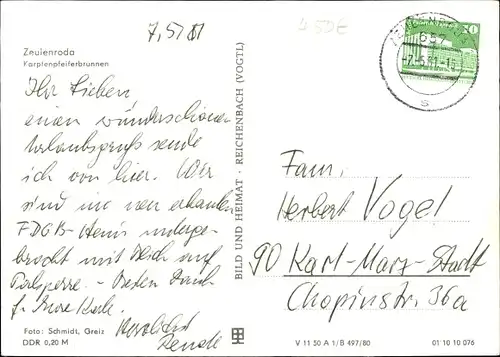 7,5/81
4 50€
Zeulenroda
Karpfenpfeiferbrunnen
ZEULENRODA
657
-7.-5.81-15
S
20
Ihr Lieben
einen wunderschönen
Urlaubsgruß sende
ich von hier. Wir
sind in neu erbauten
FDGB-Heim unterge-
bracht mit Blick auf
Talsperre. - Besten Dank
f. Eure Karte.
Herzlichst
Renate
BILD UND HEIMAT · REICHENBACH (VOGTL)
Fam.
Herbert Vogel
90 Karl-Marx-Stadt
Chopinstr. 36a
Foto: Schmidt, Greiz
DDR 0,20 M
V 11 50 A 1/B 497/80
01 10 10 076